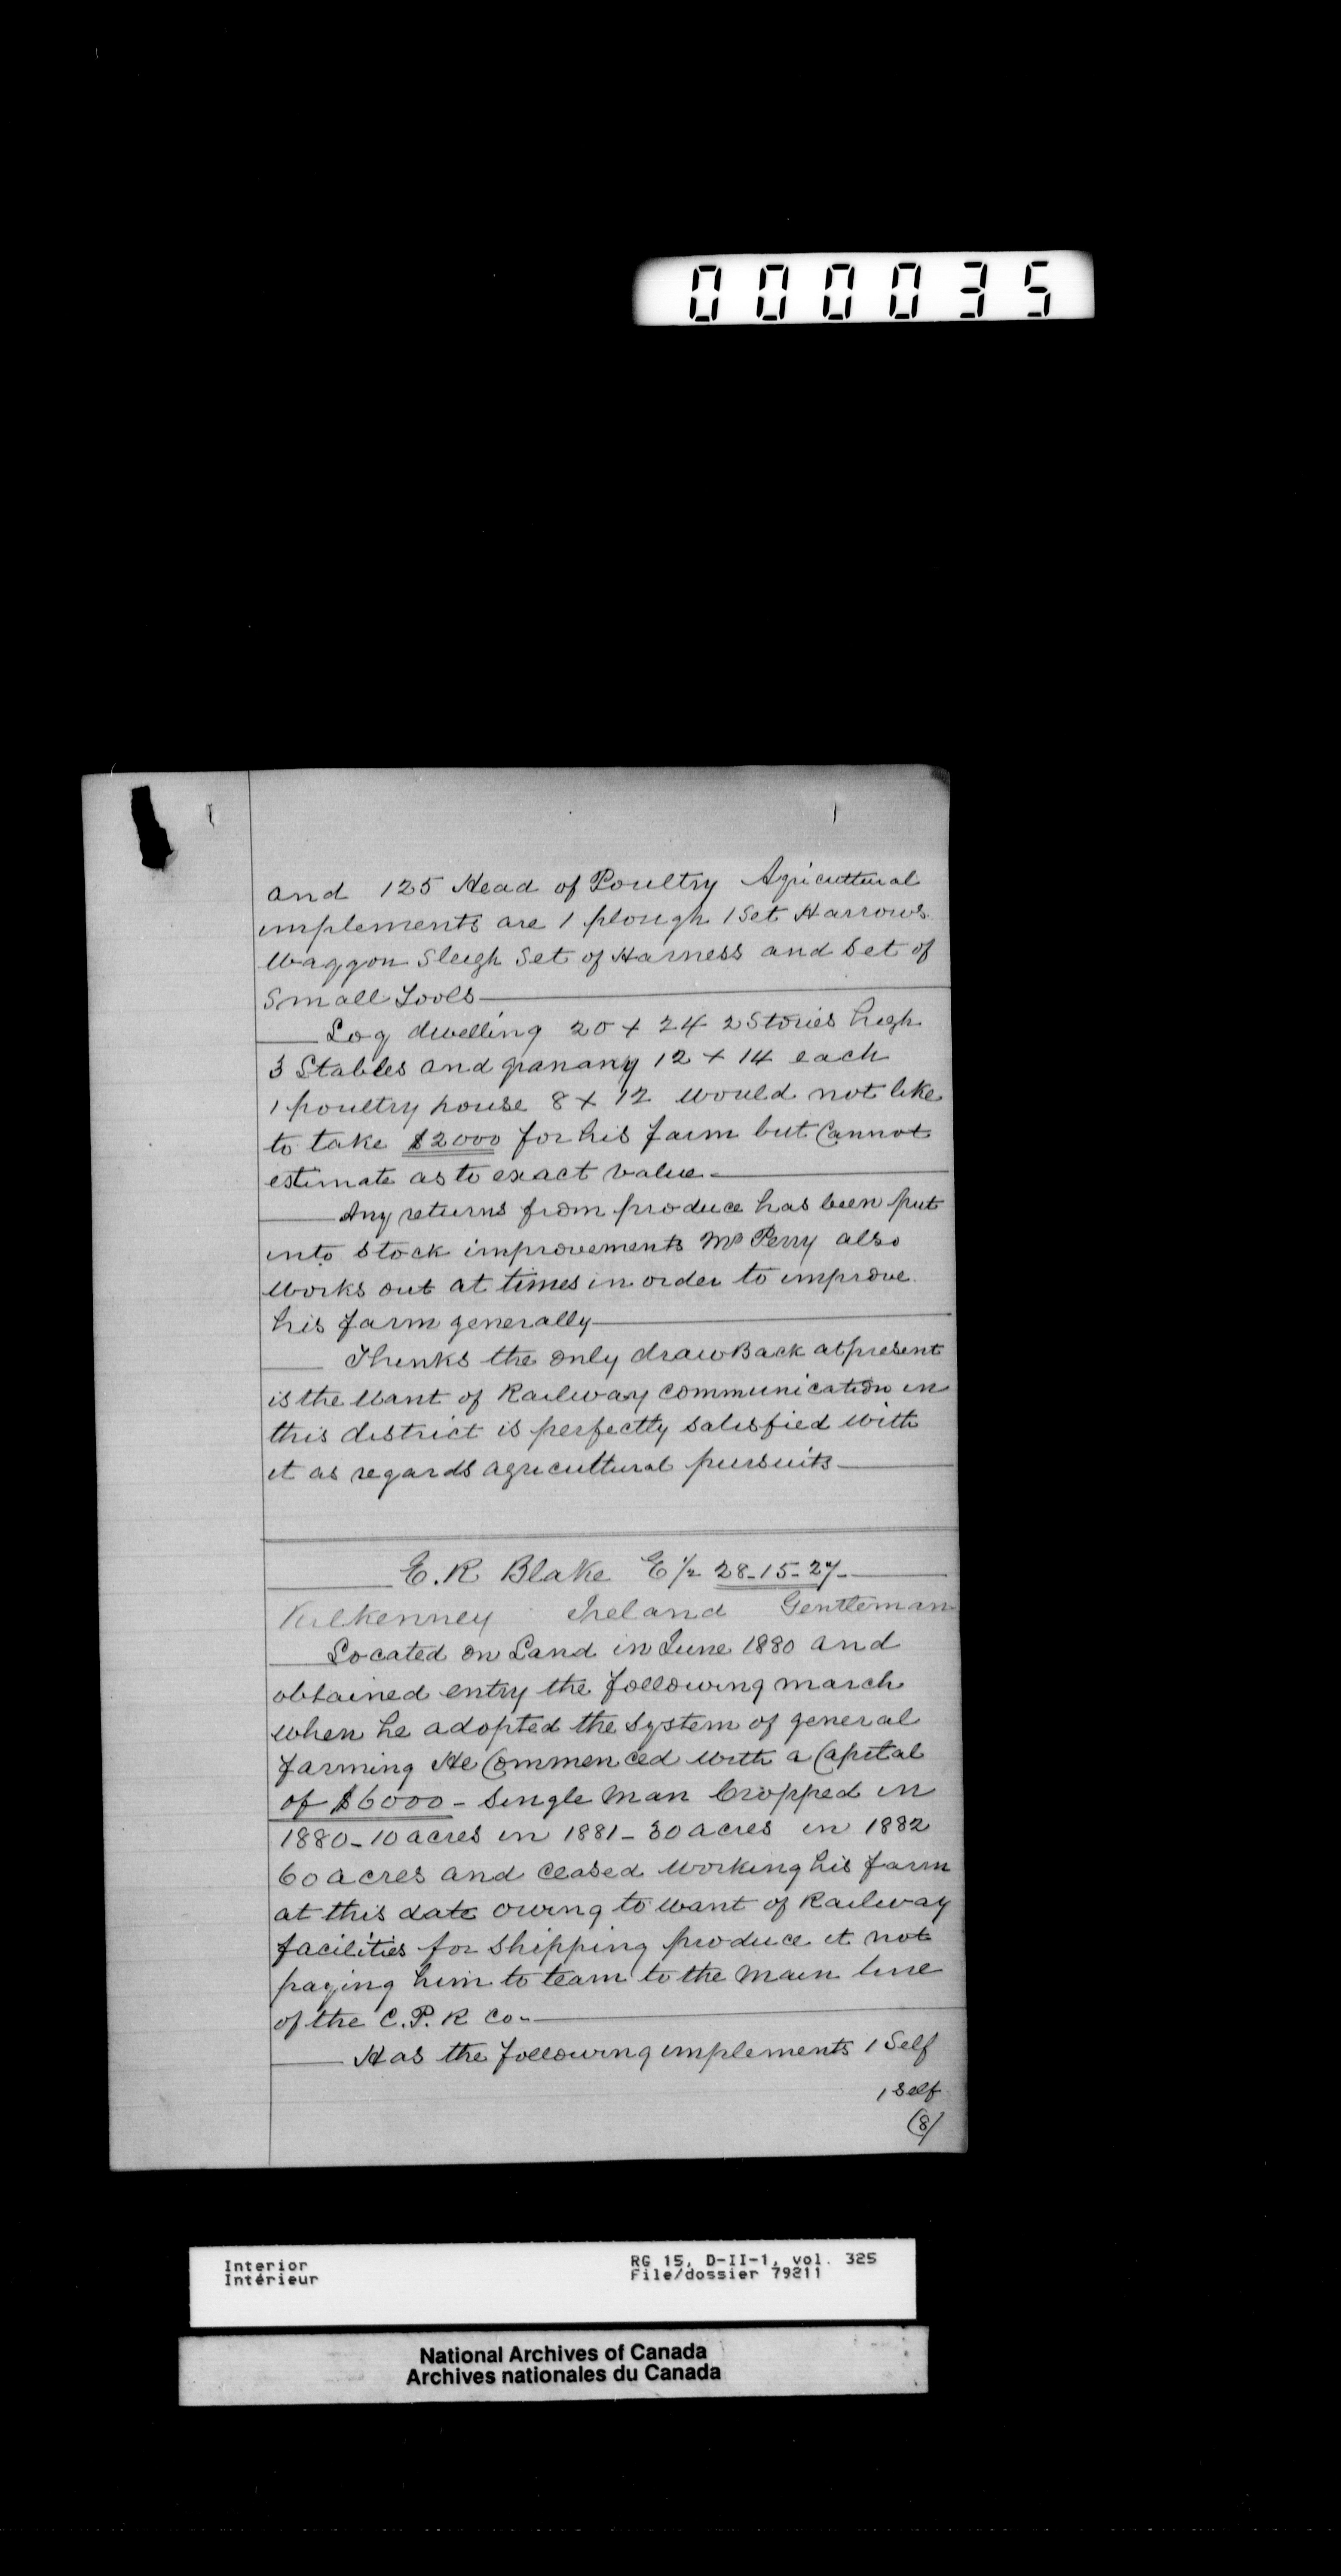 000035
and 125 Head of Poultry Agricultural
implements are 1 plough 1 Set Harrows
Waggon Sleigh Set of Harness and Set of
Small Tools
Log dwelling 20 x 24 2 Stories high
3 Stables and granary 12 x 14 each
1 poultry house 8 x 12 would not like
to take $2000 for his farm but Cannot
estimate as to exact value
Any returns from produce has been put
into Stock improvements Mr Perry also
Works out at times in order to improve
his farm generally
Thinks the only drawBack at present
is the Want of Railway Communication in
this district is perfectly satisfied with
it as regards agricultural pursuits
E. R Blake E 1/2 28-15-27
Kilkenney Ireland Gentleman
Located on Land in June 1880 and
obtained entry the following march
when he adopted the System of general
farming He Commenced with a Capital
of $6000 - Single Man Cropped in
1880 - 10 acres in 1881 - 30 acres in 1882
60 acres and ceased Working his farm
at this date owing to want of Railway
facilities for Shipping produce it not
paying him to team to the main line
of the C.P.R Co.
Has the following implements 1 Self
1 Self
(8)
Interior
Intérieur
RG 15, D-II-1, vol. 325
File/dossier 79211
National Archives of Canada
Archives nationales du Canada